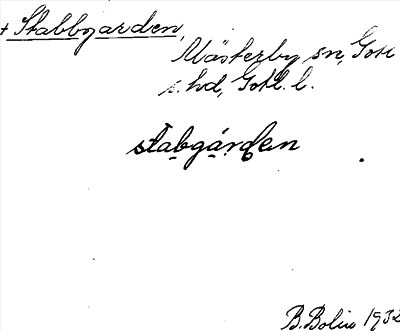 + Stabbgarden,
Mästerby sn, Gotl
s. hd, Gotl. l.
stabgárden
B. Bolin 1932